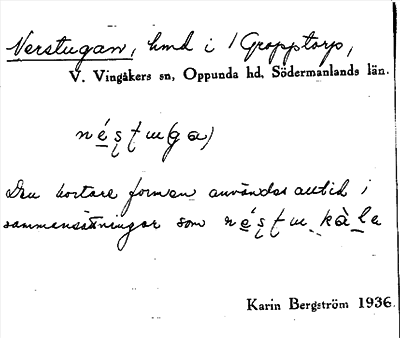 Nerstugan, hmd i / Gropptorp,
V. Vingåkers sn, Oppunda hd, Södermanlands län.
néstu(ga)
Den kortare formen användes alltid i
sammansättningar som néstu kàla
Karin Bergström 1936.